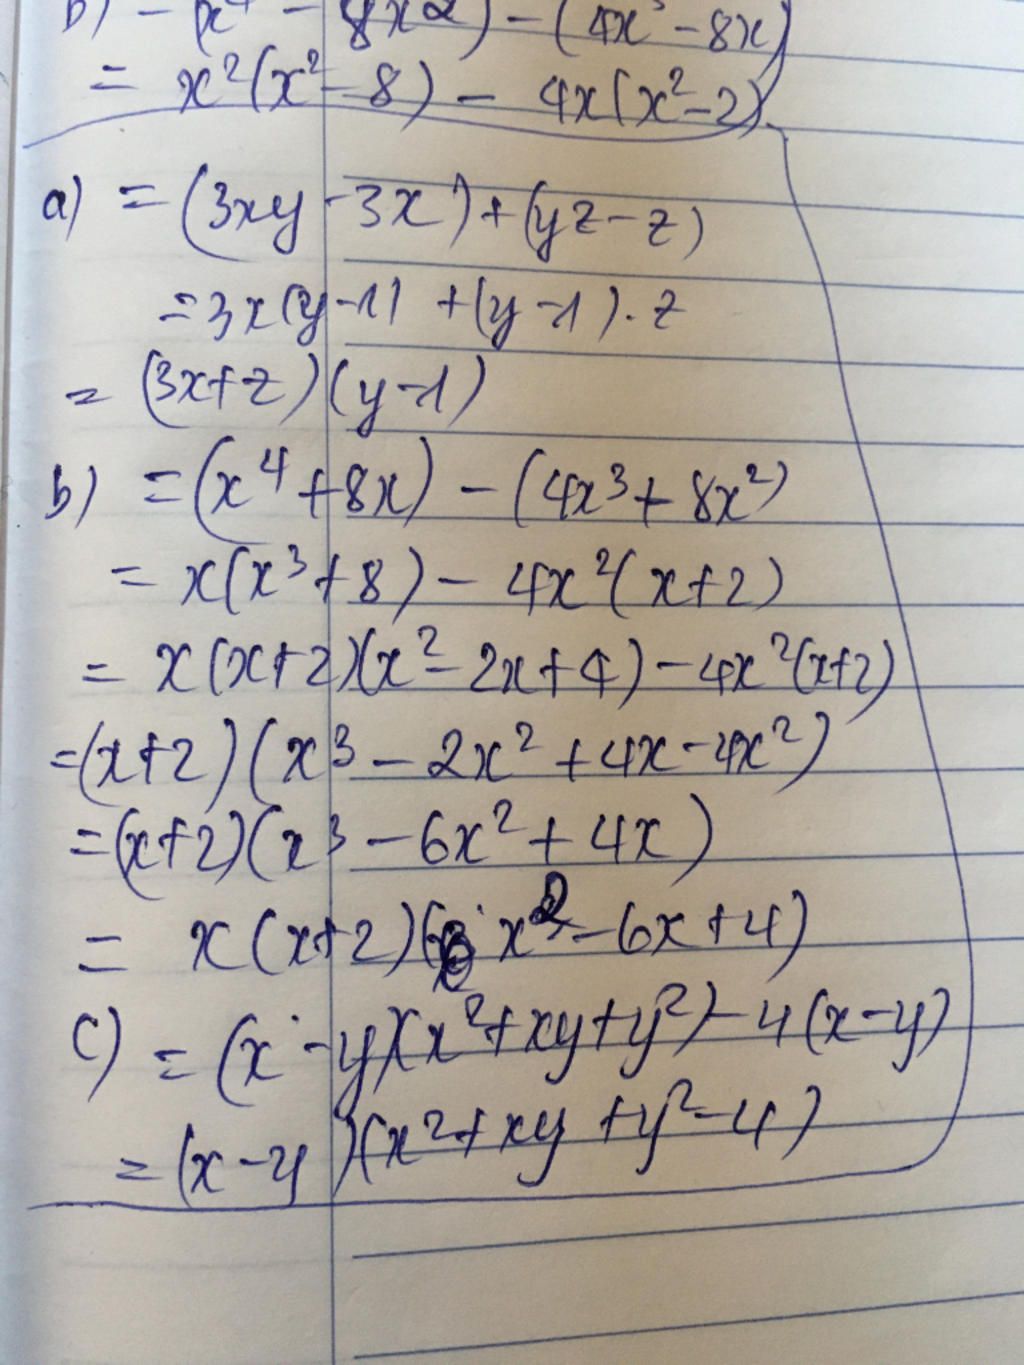 b) = (x⁴ - 8x2) - (4x³ - 8x)
= x²(x² - 8) - 4x(x² - 2)
a) = (3xy - 3x) + (yz - z)
= 3x(y - 1) + (y - 1).z
= (3x + z)(y - 1)
b) = (x⁴ + 8x) - (4x³ + 8x²)
= x(x³ + 8) - 4x²(x + 2)
= x(x + 2)(x² - 2x + 4) - 4x²(x + 2)
= (x + 2)(x³ - 2x² + 4x - 4x²)
= (x + 2)(x³ - 6x² + 4x)
= x(x + 2)(x² - 6x + 4)
c) = (x - y)(x² + xy + y²) - 4(x - y)
= (x - y)(x² + xy + y² - 4)